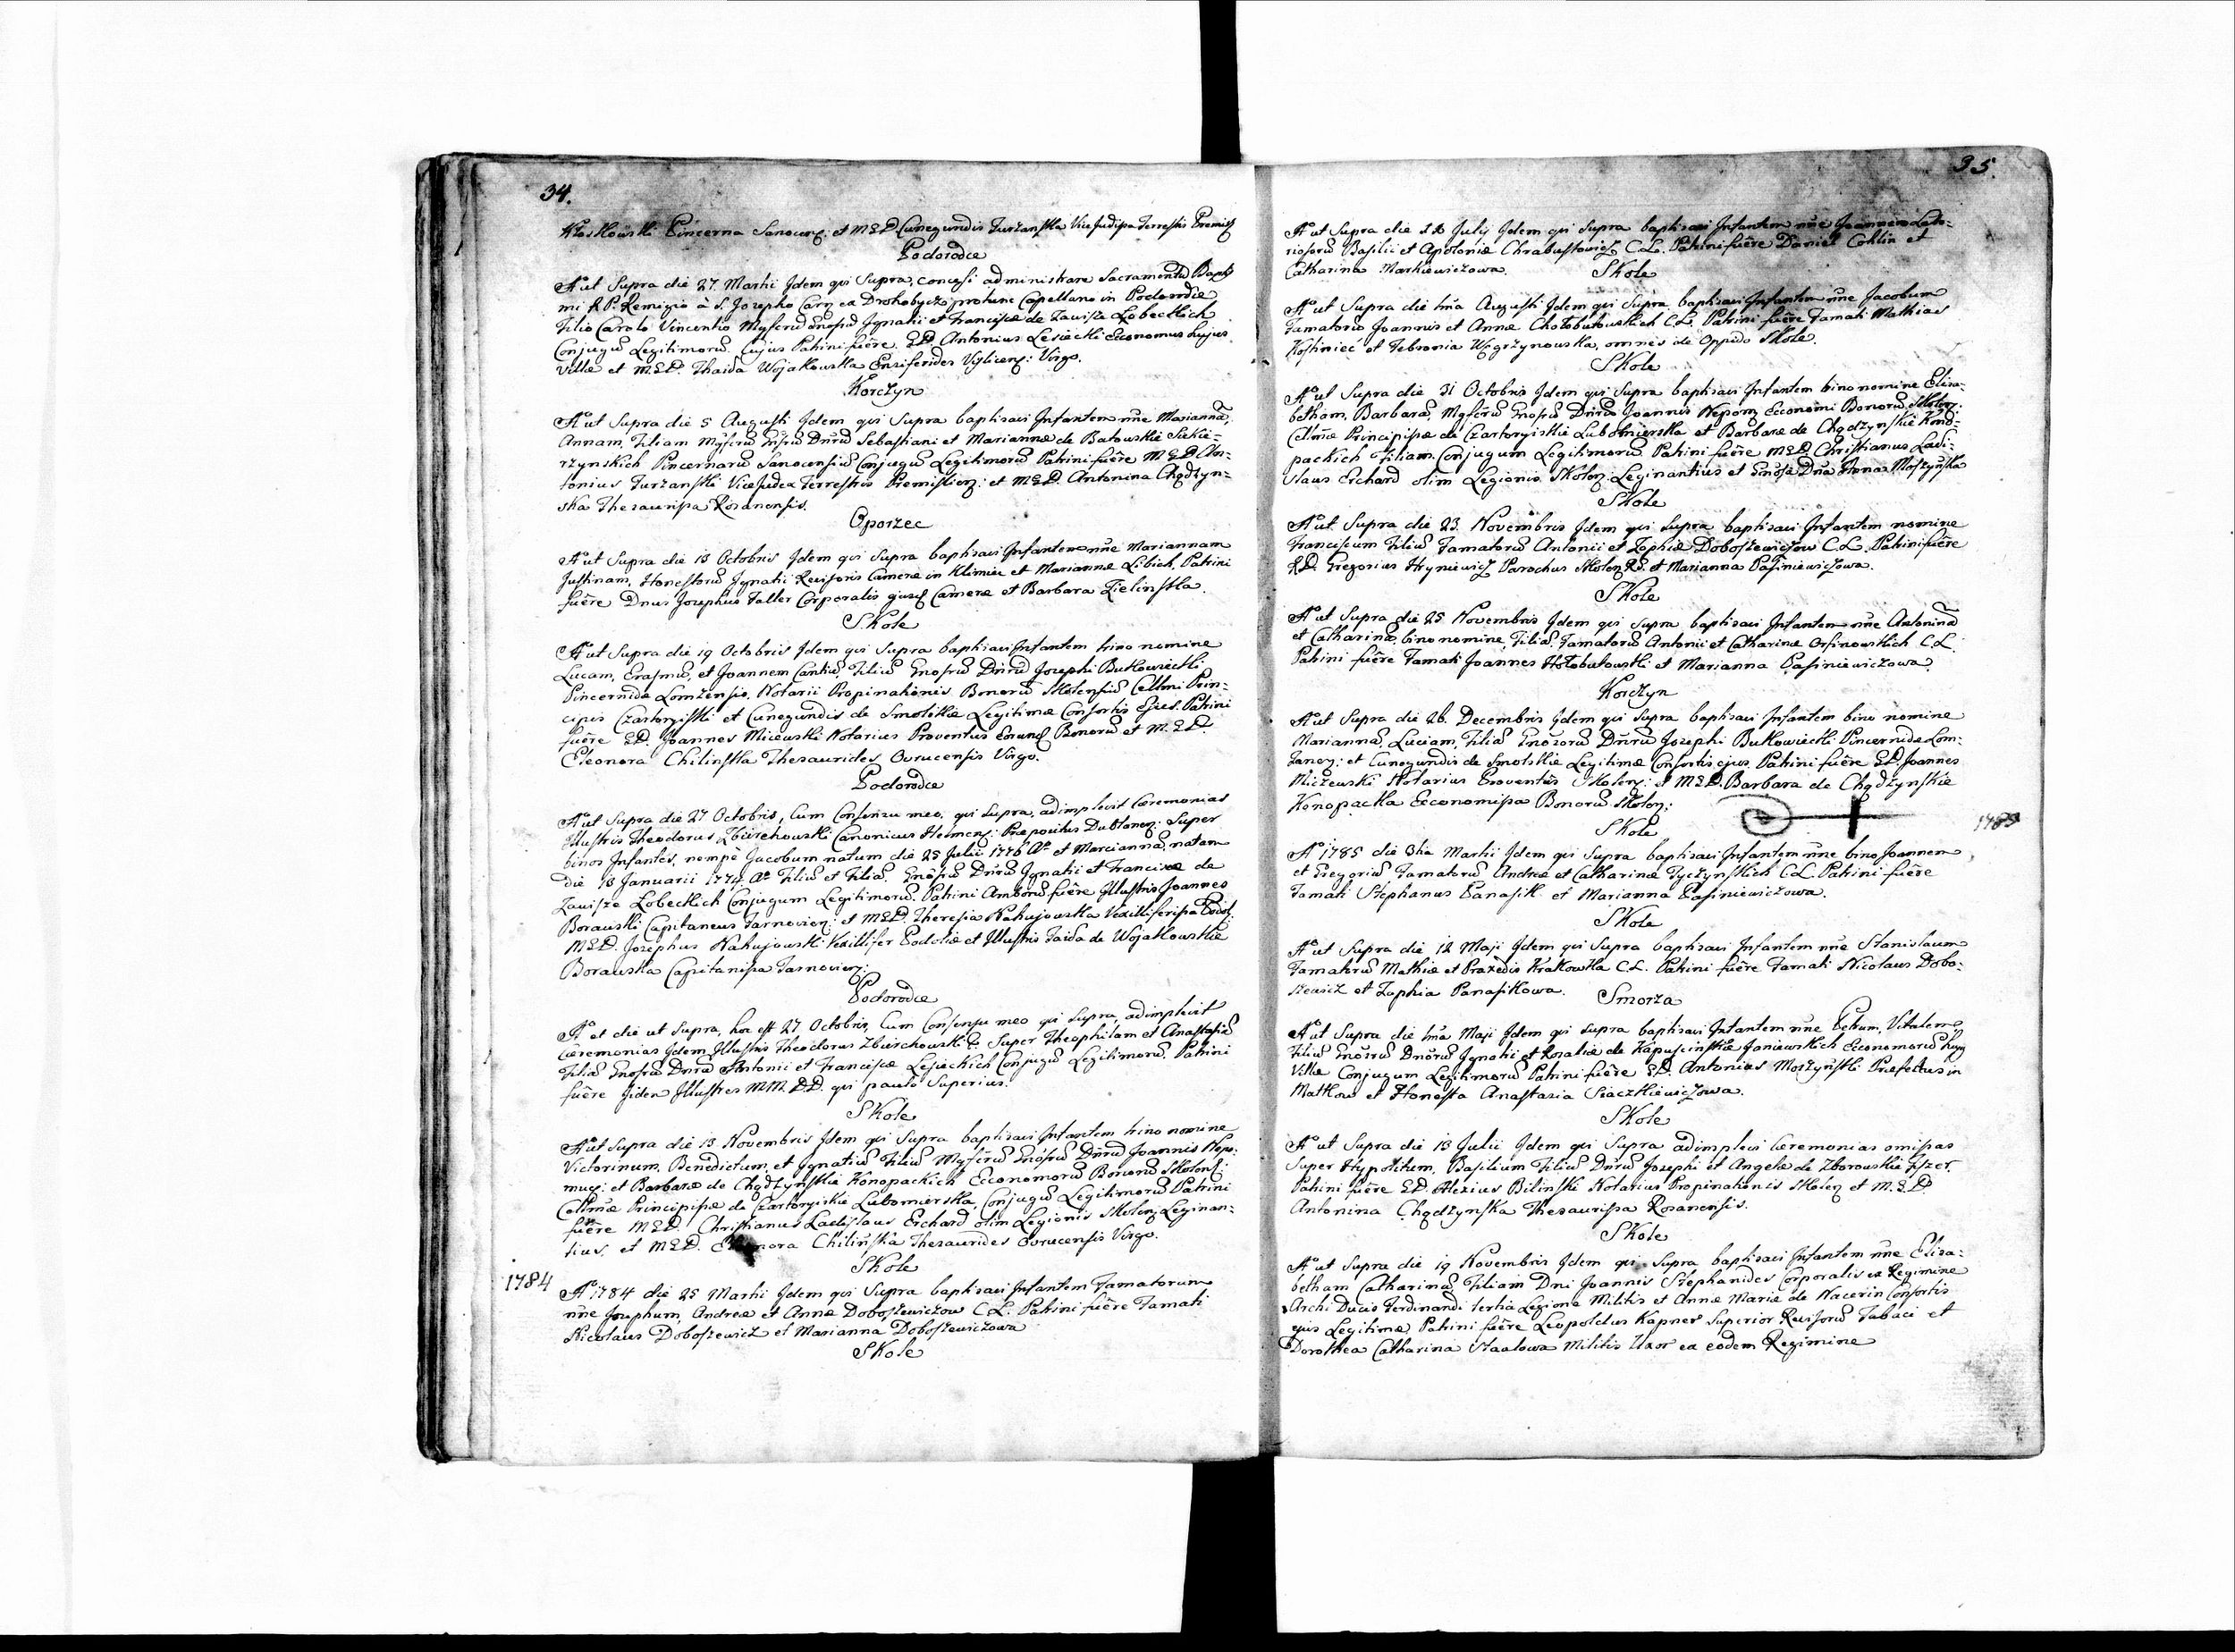 34.
Kłoskowski Pincerna Sanocens: et M.G.D. Cunegundis Turżanska Vice Judissa Terrestris Premisl
Podorodce
Aº ut Supra die 27 Martii Idem qui Supra, concessi administrare Sacramentū Baptis
mi R. P. Remigio à S. Josepho Carm ex Drohobycz protunc Capellano in Podorodce
Filio Carolo Vincentio Mgficorū Gnosorū Ignatii et Franciscæ de Zawisza Łobeckich
Conjugū Legitimorū. Cujus Patrini fuêre G.D. Antonius Lesiecki Œconomus hujus
Villæ et M.G.D. Thaida Wojakowska Ensiferides Vglicens: Virgo.
Korczyn
Aº ut Supra die 5 Augusti Idem qui Supra baptisavi Infantem nñe Mariannã,
Annam, Filiam Mgficorū Gnsorū Dnrū Sebastiani et Mariannæ de Batowskie Siekie=
rzynskich Pincernarū Sanocensiū Conjugū Legitimorū Patrini fuêre M.G.D. An=
tonius Turżanski Vice Judex Terrestris Premisliens: et M.G.D. Antonina Chądzyn=
ska Thesaurissa Rosanensis.
Oporzec
Aº ut Supra die 13 Octobris Idem qui Supra baptisavi Infantem nñe Mariannam
Justinam, Honestorū Ignatii Revisoris Cameræ in Klimiec et Mariannæ Libich, Patrini
fuêre Dnus Josephus Faller Corporalis ejusd Cameræ et Barbara Zielinska.
Skole
Aº ut Supra die 19 Octobris Idem qui Supra baptisavi Infantem trino nomine
Lucam, Erasmū, et Joannem Cantiū, Filiū Gnosorū Dnrū Josephi Butkowiecki
Pincernidæ Lomzensis, Notarii Propinationis Bonorū Skolensiū Celsmi Prin=
cipis Czartoryiski et Cunegundis de Smolskie Legitimæ Consortis Ejus. Patrini
fuêre G.D. Joannes Micewski Notarius Proventus Eorund Bonorū et M.G.D.
Eleonora Chilinska Thesaurides Ovrucensis Virgo.
Podorodce
Aº ut Supra die 27 Octobris, Cum Consensu meo, qui Supra, adimplevit Cæremonias
Illustris Theodorus Zbierchowski Canonicus Helmens: Præpositus Dublanens: Super
binos Infantes, nempè Jacobum natum die 25 Julii 1776 Aº et Mariannã, natam
die 13 Januarii 1774 Aº Filiū et Filiã, Gnosorū Dnrū Ignatii et Franciscæ de
Zawisze Łobeckich Conjugum Legitimorū. Patrini Amborū fuêre Illustris Joannes
Borawski Capitaneus Tarnoviens: et M.G.D. Theresia Nahujowska Vexilliferissa Podol:
M.G.D. Josephus Nahujowski Vexillifer Podoliæ et Illustris Taida de Wojakowskie
Borawska Capitanissa Tarnoviens:
Podorodce
Aº et die ut Supra, hoc est 27 Octobris, Cum Consensu meo qui Supra, adimplevit
Cæremonias Idem Illustris Theodorus Zbierchowski &. Super Theophilam et Anastasiã
Filiã Gnosorū Dnrū Antonii et Franciscæ Lesieckich Conjugū Legitimorū. Patrini
fuêre Iidem Illustres M.M. D.D. qui paulo Superius.
Skole
Aº ut Supra die 13 Novembris Idem qui Supra baptisavi Infantem trino nomine
Victorinum, Benedictum, et Ignatiū Filiū Mgficorū Gnosorū Dnrū Joannis Nepo:
muc: et Barbaræ de Chądzynskie Konopackich Œconomorū Bonorū Skolens:
Celsmæ Principissæ de Czartoryiskie Lubomirska, Conjugū Legitimorū Patrini
fuêre M.G.D. Christianus Ladislaus Erchard olim Legionis Skolens Leginan=
tius, et M.G.D. Eleonora Chilinska Thesaurides Ovrucensis Virgo.
Skole
1784
Aº 1784 die 25 Martii Idem qui Supra baptisavi Infantem Famatorum
nñe Josephum, Andreæ et Annæ Doboszewiczow C.L. Patrini fuêre Famati
Nicolaus Doboszewicz et Marianna Doboszewiczowa
Skole
35.
Aº ut Supra die 22 Julij Idem qui Supra baptisavi Infantem nñe Joannem Labo=
riosorū Basilii et Apoloniæ Chrabustowicz C.L. Patrini fuêre Daniel Cohlin et
Catharina Markiewiczowa.
Skole
Aº ut Supra die 1ma Augusti Idem qui Supra baptisavi Infantem nñe Jacobum
Famatorū Joannis et Annæ Chołobutowskich C.L. Patrini fuêre Famati Mathias
Kostiniec et Febronia Węgrzynowska, omnes de Oppido Skole.
Skole
Aº ut Supra die 31 Octobris Idem qui Supra baptisavi Infantem bino nomine Elisa=
betham, Barbarã Mgficorū Gnosorū Dnrū Joannis Nepom Œconomi Bonorū Skolens:
Celsmæ Principissæ de Czartoryiskie Lubomirska et Barbaræ de Chądzynskie Kono=
packich Filiam, Conjugum Legitimorū. Patrini fuêre M.G.D. Christianus Ladi=
slaus Erchard olim Legionis Skolens Leginantius et Gnosa Dna Anna Moszyńska
Skole
Aº ut Supra die 23 Novembris Idem qui Supra baptisavi Infantem nomine
Franciscum Filiū Famatorū Antonii et Zophiæ Doboszewiczow C.L. Patrini fuêre
R.D. Gregorius Hryniewicz Parochus Skolens R.G. et Marianna Pasiniewiczowa.
Skole
Aº ut Supra die 25 Novembris Idem qui Supra baptisavi Infantem nñe Antoninã
et Catharinã bino nomine, Filiã Famatorū Antonii et Catharinæ Orsinowskich C.L.
Patrini fuêre Famati Joannes Hołobutowski et Marianna Pasiniewiczowa.
Korczyn
Aº ut Supra die 26 Decembris Idem qui Supra baptisavi Infantem bino nomine
Mariannã, Luciam, Filiã Gnosorū Dnrū Josephi Butkowiecki Pincernidæ Lom=
zanens: et Cunegundis de Smolskie Legitimæ Consortis ejus. Patrini fuêre G.D. Joannes
Miczewski Notarius Proventûs Skolens: et M.G.D. Barbara de Chądzynskie
Konopacka Œconomissa Bonorū Skolens:
Skole
1785
Aº 1785 die 3tia Martii Idem qui Supra baptisavi Infantem nñe bino Joannem
et Gregoriū Famatorū Andreæ et Catharinæ Tyczynskich C.L. Patrini fuêre
Famati Stephanus Panasik et Marianna Pasiniewiczowa.
Skole
Aº ut Supra die 12 Maji Idem qui Supra baptisavi Infantem nñe Stanislaum
Famatorū Mathiæ et Praxedis Krakowka C.L. Patrini fuêre Famati Nicolaus Dobo=
szewicz et Zophia Panasikowa.
Smorza
Aº ut Supra die 1ma Maji Idem qui Supra baptisavi Infantem nñe Petrum, Vitalem
Filiū Gnosorū Dnorū Ignatii et Rosaliæ de Kapuscinskie Janiewskich Œconomorū hujus
Villæ Conjugum Legitimorū Patrini fuêre G.D. Antonius Moszyński Præfectus in
Matkow et Honesta Anastazia Siaczkiewiczowa.
Skole
Aº ut Supra die 13 Julii Idem qui Supra adimplevi Cæremonias omissas
Super Hypolitum, Basilium Filiū Dnrū Josephi et Angelæ de Zborowskie Fiszer.
Patrini fuêre G.D. Alexius Bilinski Notarius Propinationis Skolens et M.G.D.
Antonina Chądzynska Thesaurissa Rosanensis.
Skole
Aº ut Supra die 19 Novembris Idem qui Supra baptisavi Infantem nñe Elisa=
betham Catharinã Filiam Dni Joannis Stephanides Corporalis ex Regimine
Archi Ducis Ferdinandi tertia Legione Militis et Annæ Mariæ de Nacerin Consortis
ejus Legitimæ Patrini fuêre Leopoldus Kapner Superior Revisorū Tabaci et
Dorothea Catharina Staalowa Militis Uxor ex eodem Regimine